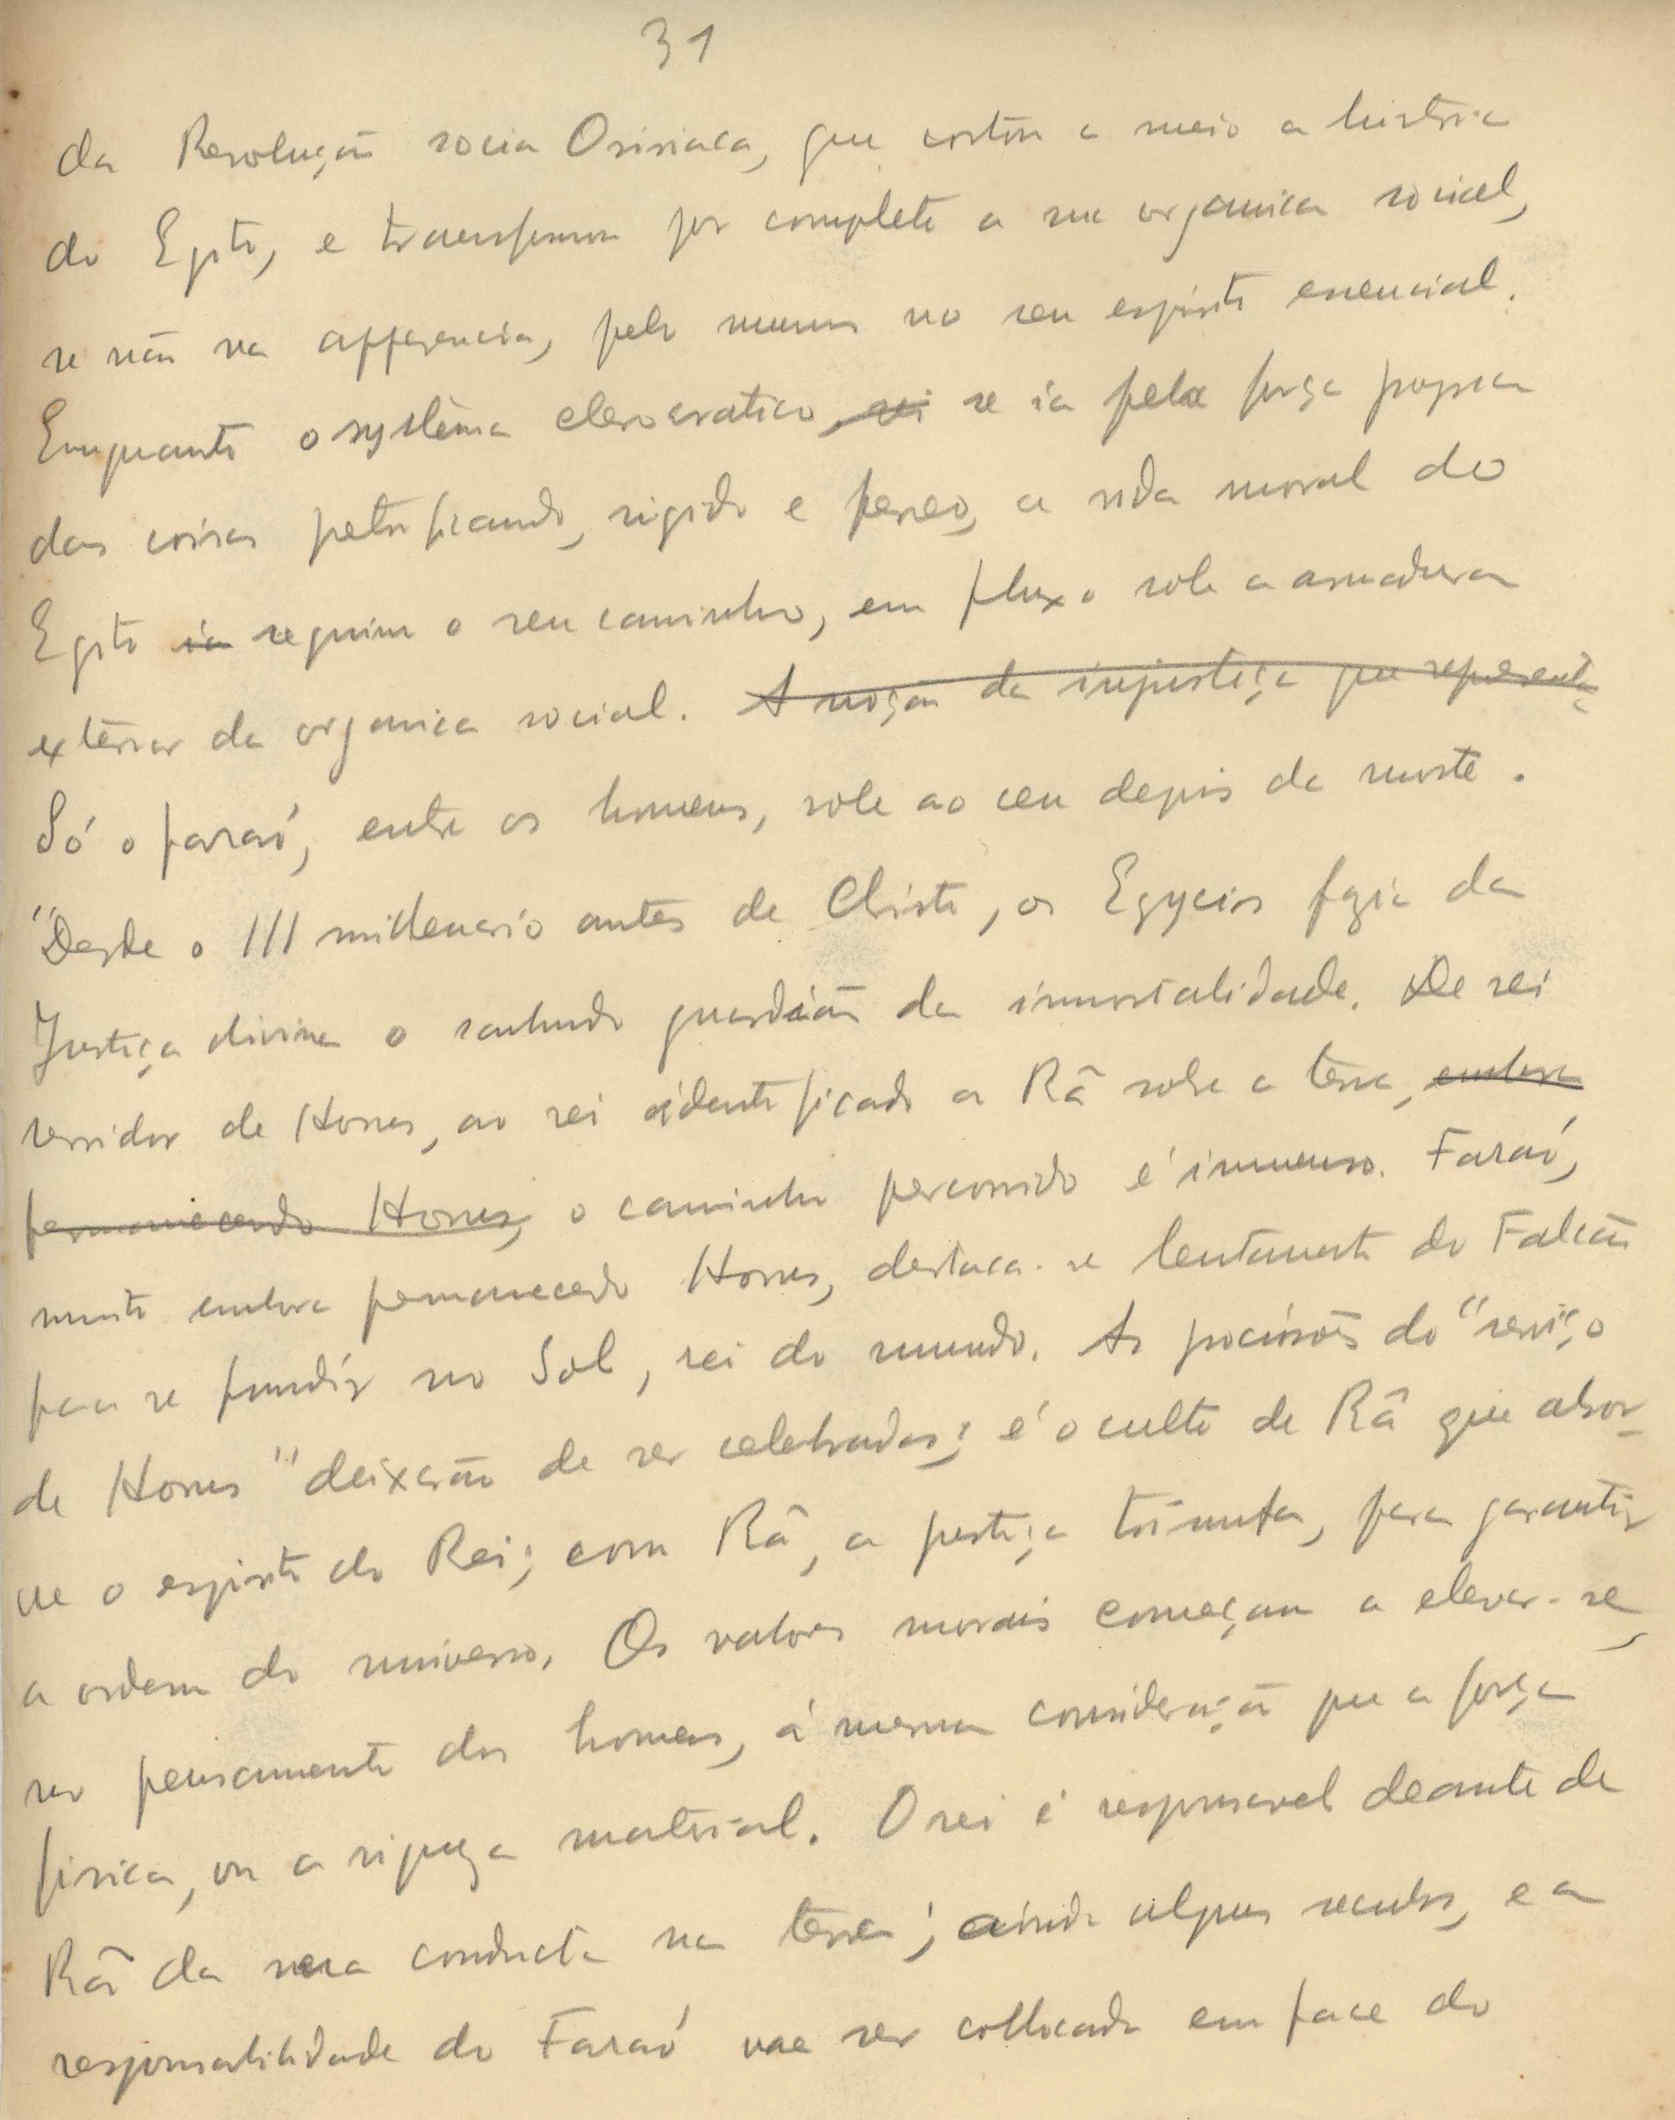 31
da Revolução socia Osiriaca, que cortou a meio a historia
do Egito, e transformou por completo a sua organica social,
se não na apparencia, pelo menos no seu espirito essencial.
Emquanto o systema clerocratico, ~~vai~~ se ia pela força propria
das coisas petrificando, rigido e ferreo, a vida moral do
Egito ~~ia~~ seguiu o seu caminho, em fluxo sob a armadura
exterior da organica social. ~~A noção da injustiça que representa~~
Só o faraó, entre os homens, sobe ao ceu depois da morte.
"Desde o III millenario antes de Christo, os Egycios fazia da
Justiça divina o sanhudo guardião da immortalidade. De rei
servidor de Horus, ao rei identificado a Râ sobre a terra, ~~embora~~
~~permanecendo Horus,~~ o caminho percorrido é immenso. Faraó,
muito embora permanecendo Horus, destaca-se lentamente do Falcão
para se fundir no Sol, rei do mundo. As procissões do "serviço
de Horus" deixarão de ser celebradas; é o culto de Râ que absor-
ve o espirito do Rei; com Râ, a justiça triunfa, para garantir
a ordem do universo. Os valores morais começam a elevar-se,
no pensamento dos homens, á mesma consideração que a força
fisica, ou a riqueza material. O rei é responsavel deante de
Râ da sua conducta na terra; ainda alguns seculos, e a
responsabilidade do Faraó vae ser collocada em face do